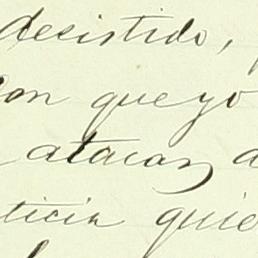 desistido,
on que yo
atacar, a
ticia quie